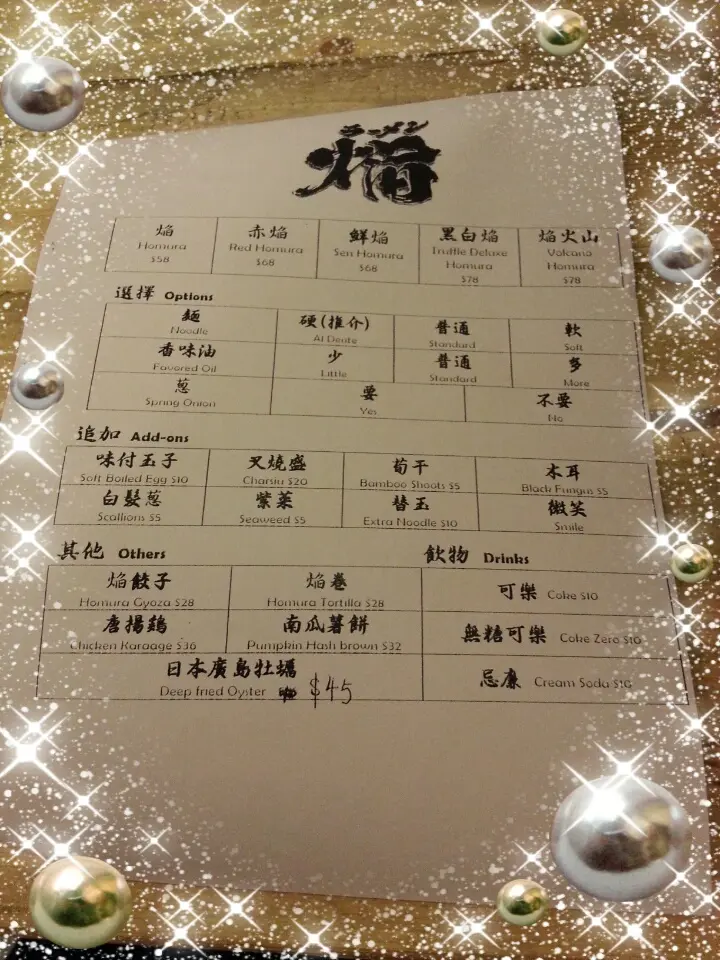 ラーメン
焔
焔 赤焔 鮮焔 黑白焔 焔火山
Homura Red Homura Sen Homura Truffle Deluxe Volcano
Homura Homura
$58 $68 $68 $78 $78
選擇 Options
麵 硬(推介) 普通 軟
Noodle Al Dente Standard Soft
香味油 少 普通 多
Favored Oil Little Standard More
葱 要 不要
Spring Onion Yes No
追加 Add-ons
味付玉子 叉燒盛 荀干 木耳
Soft Boiled Egg $10 Charsiu $20 Bamboo Shoots $5 Black Fungus $5
白髮葱 紫菜 替玉 微笑
Scallions $5 Seaweed $5 Extra Noodle $10 Smile
其他 Others
焔餃子 焔卷
Homura Gyoza $28 Homura Tortilla $28
唐揚鷄 南瓜薯餅
Chicken Karaage $36 Pumpkin Hash brown $32
日本廣島牡蠣
Deep fried Oyster $45
飲物 Drinks
可樂 Coke $10
無糖可樂 Coke Zero $10
忌廉 Cream Soda $10